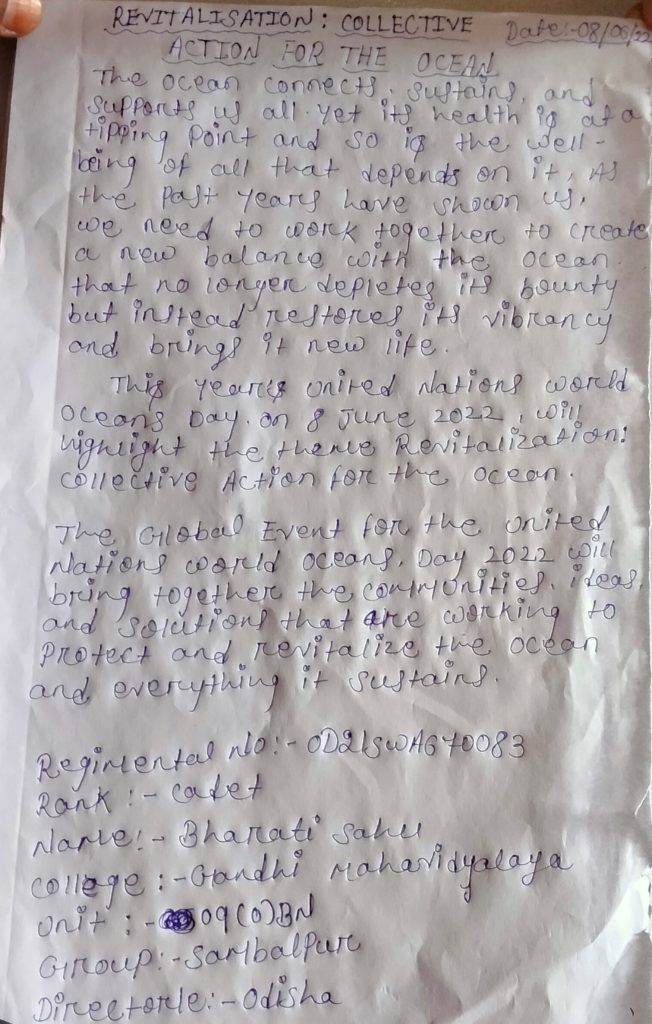 REVITALISATION: COLLECTIVE
Date:-08/06/22
ACTION FOR THE OCEAN
The ocean connects, sustains, and
supports us all. yet its health is at a
tipping point and so is the well-
being of all that depends on it, As
the past years have shown us,
we need to work together to create
a new balance with the ocean
that no longer depletes its bounty
but instead restores its vibrancy
and brings it new life.
This years united Nations world
Oceans Day. on 8 June 2022, will
highlight the theme Revitalization:
Collective Action for the ocean.
The Global Event for the united
Nations world oceans, Day 2022 will
bring together the communities, ideas,
and solutions that are working to
protect and revitalize the ocean
and everything it sustains.
Regimental No:- OD21SWA670083
Rank :- cadet
Name:- Bharati sahu
College :- Gandhi Mahavidyalaya
Unit :- 09(O)BN
Group:- Sambalpur
Directorle:- Odisha